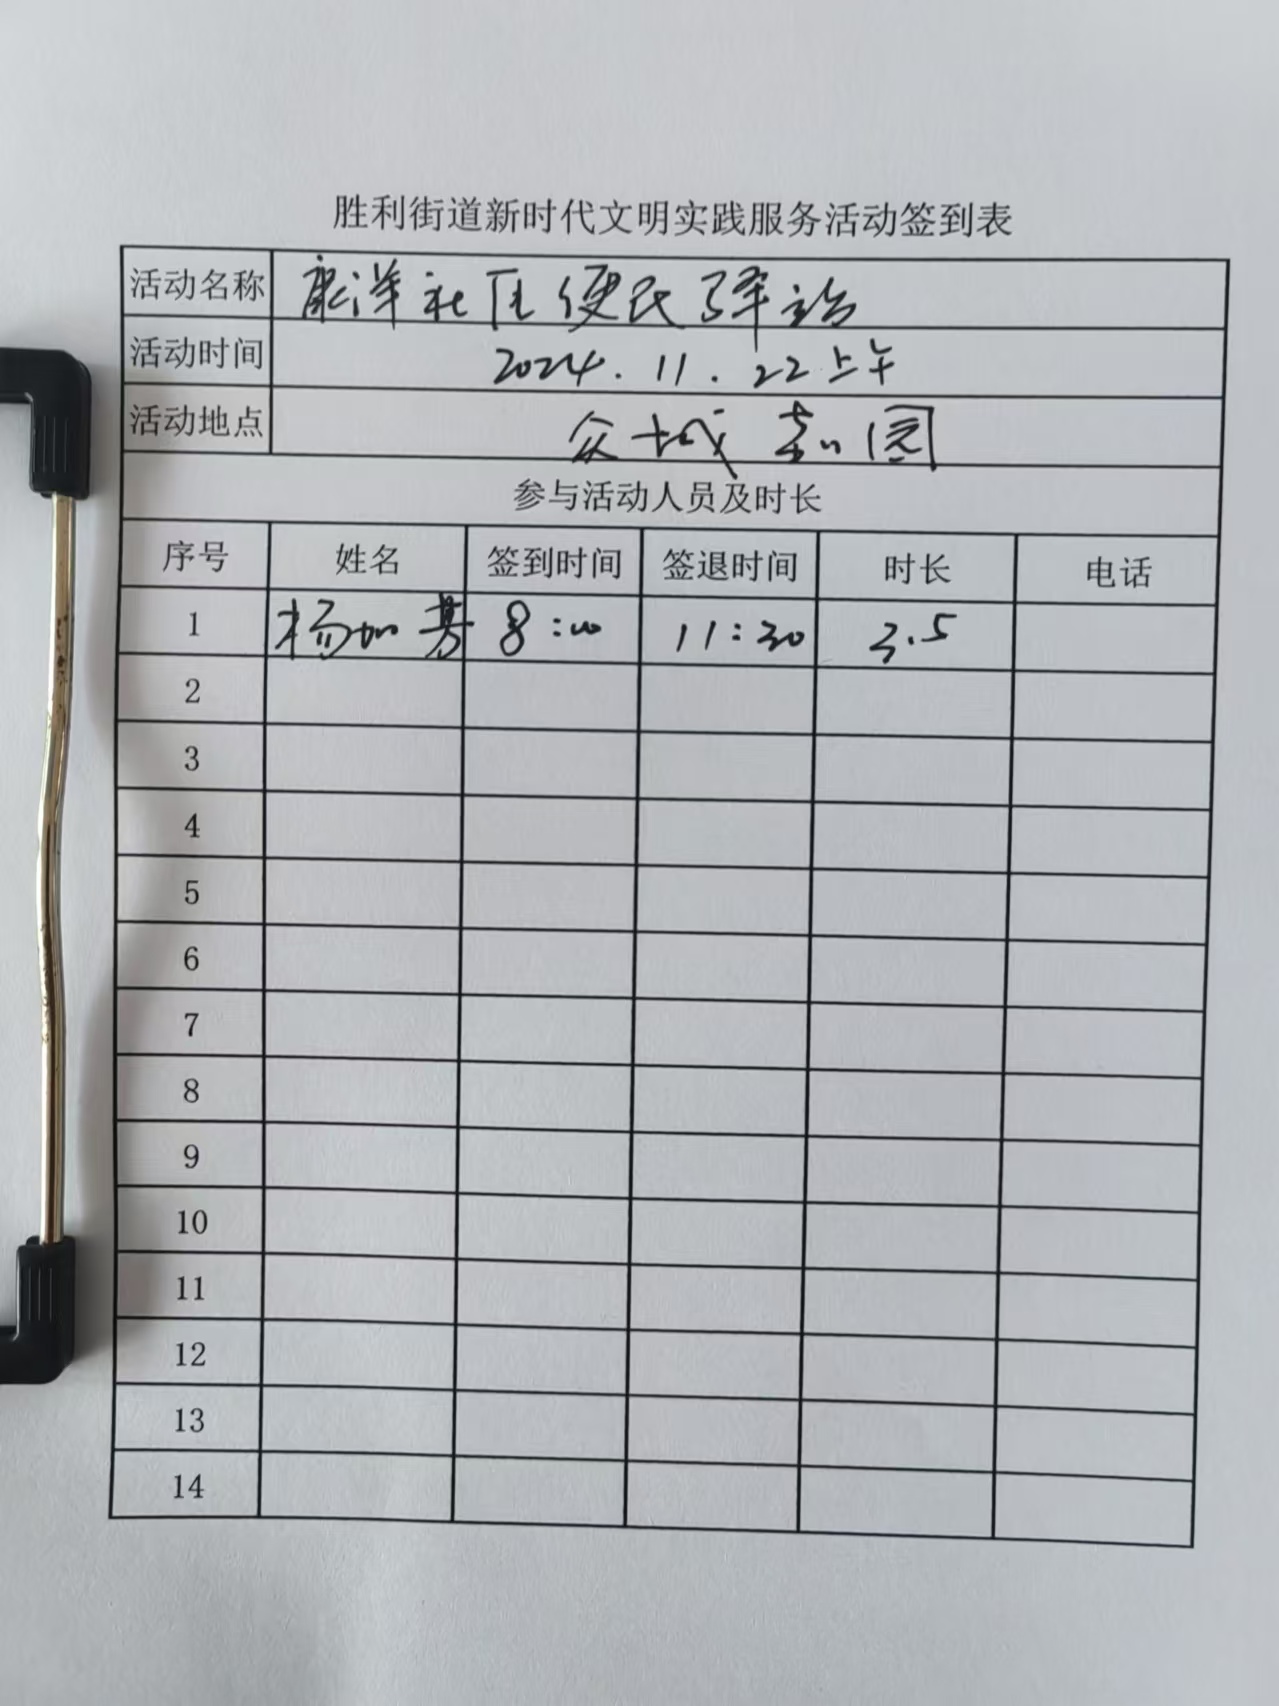 胜利街道新时代文明实践服务活动签到表
活动名称 康洋社区便民驿站
活动时间 2024.11.22上午
活动地点 众城嘉园
参与活动人员及时长
序号 姓名 签到时间 签退时间 时长 电话
1 杨加 8:00 11:30 3.5
2
3
4
5
6
7
8
9
10
11
12
13
14